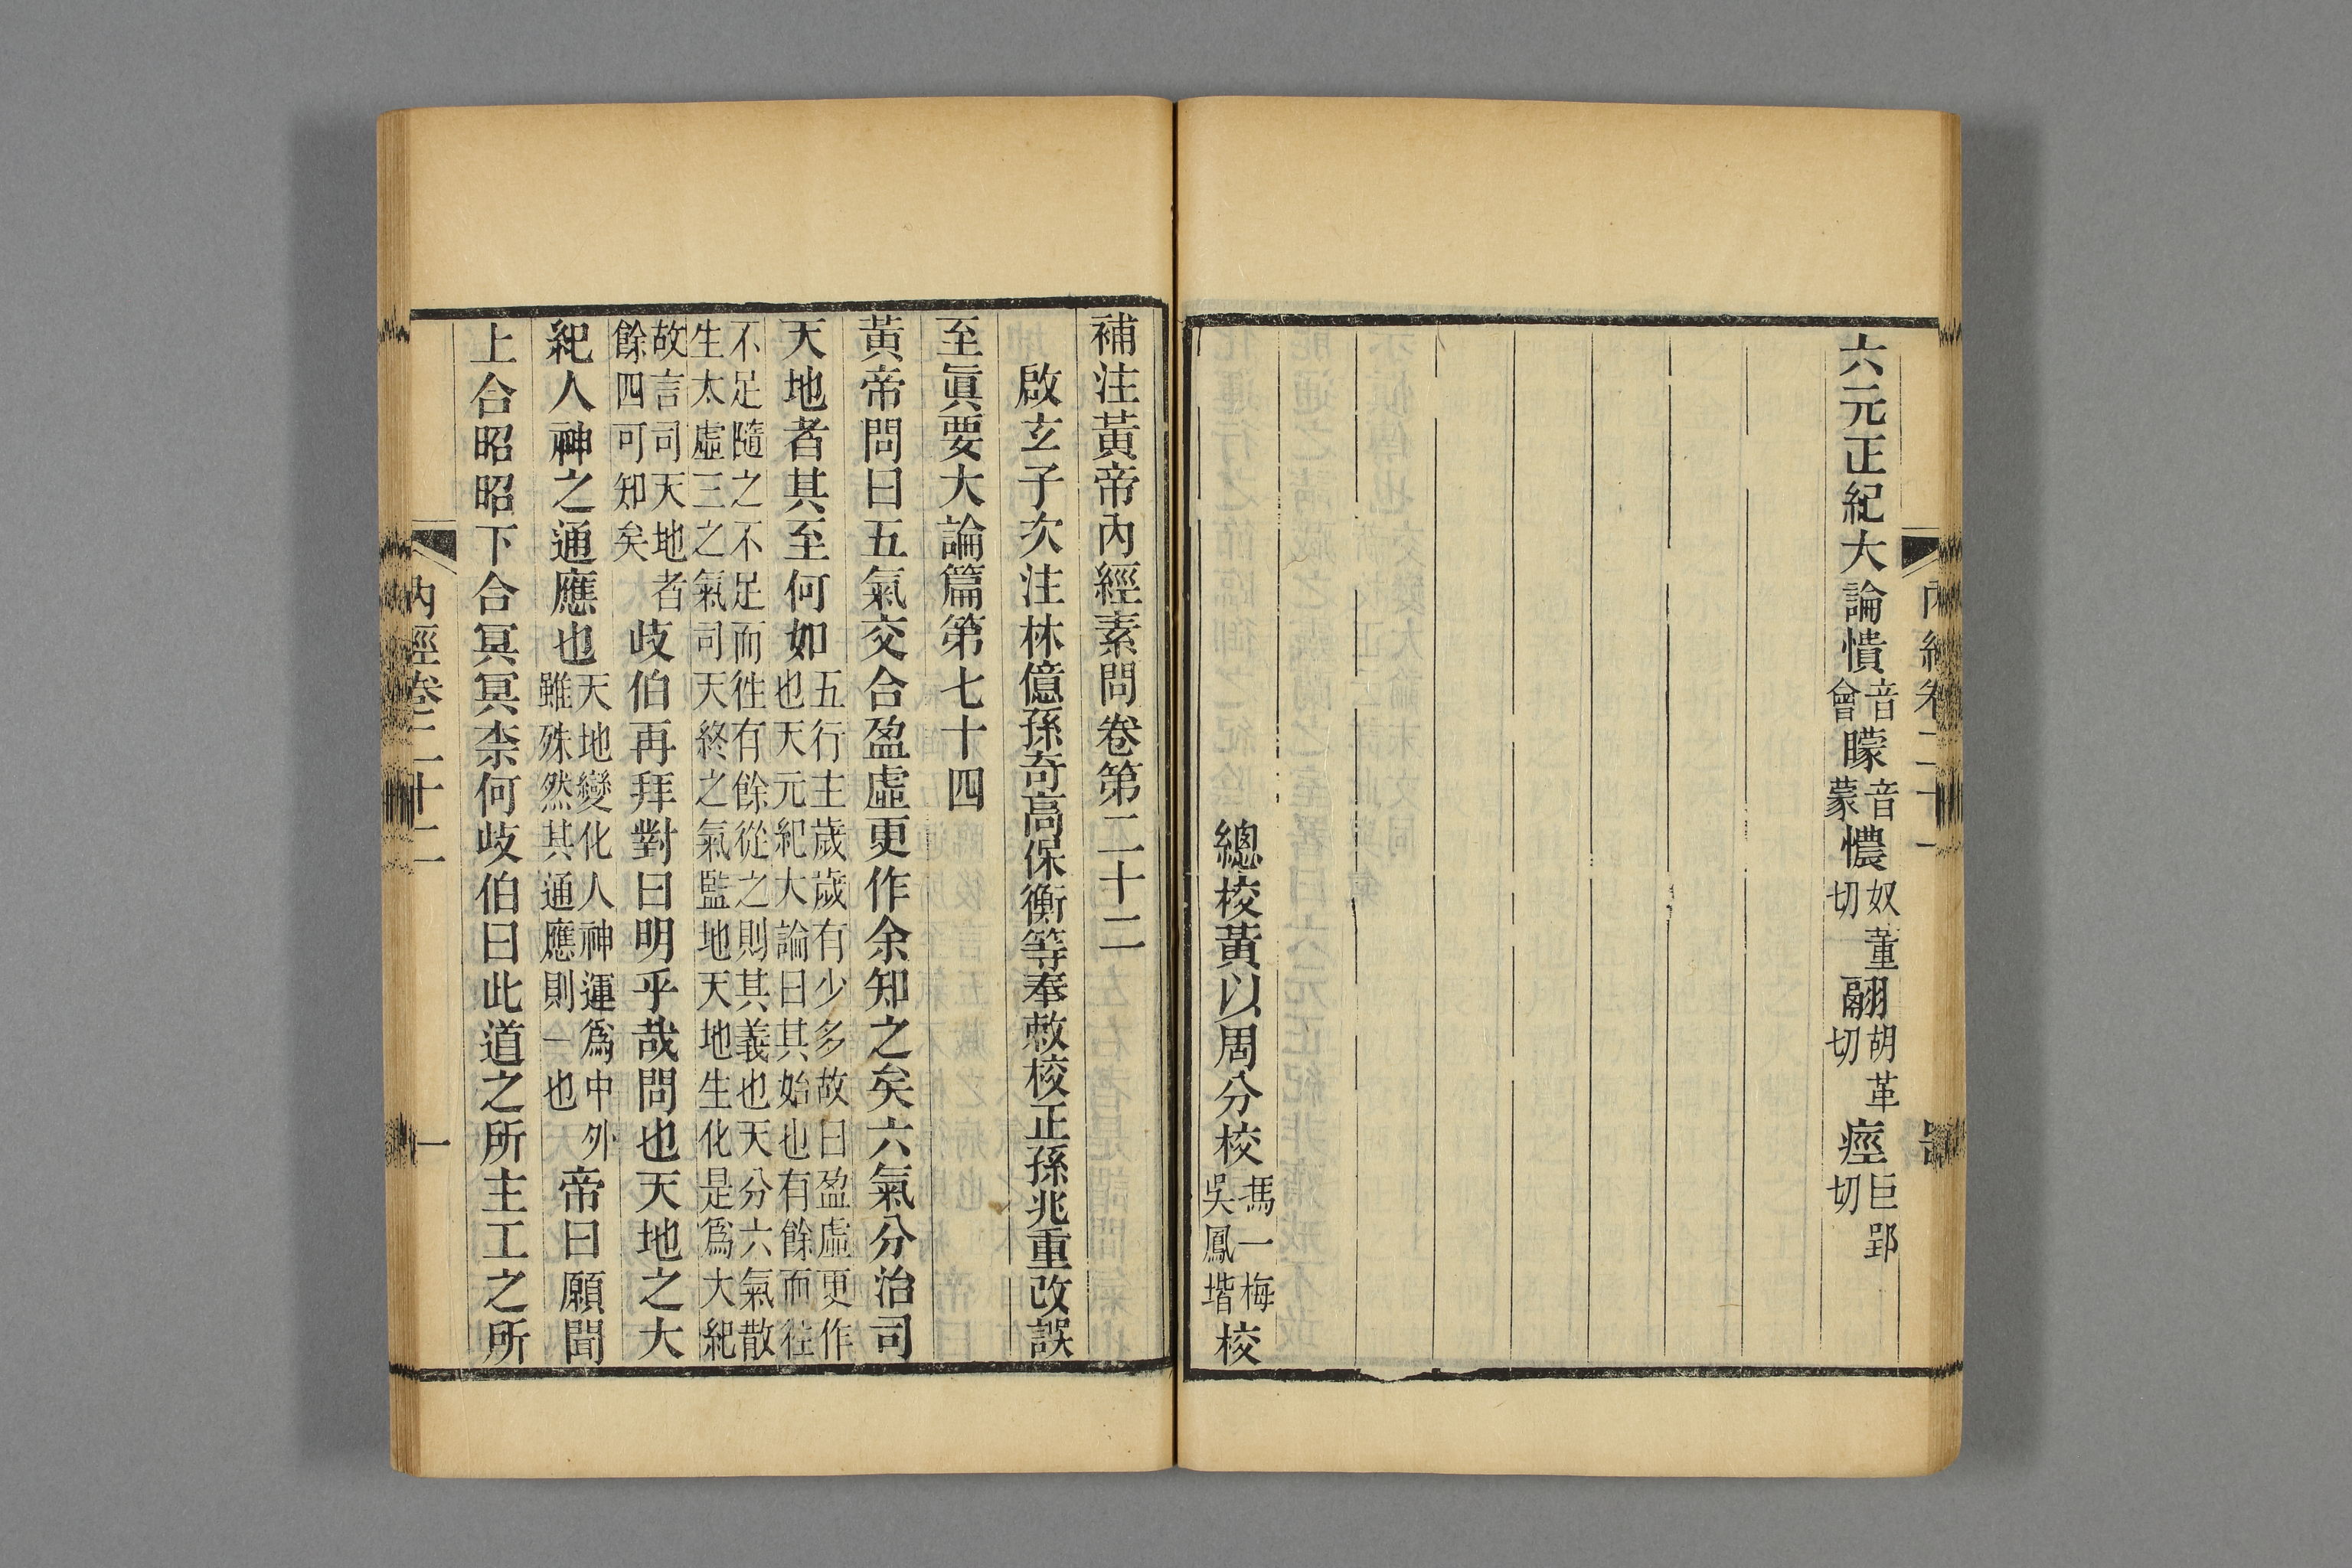 六元正紀大論憒音會矇音蒙憹奴董切翮胡革切痙巨郢切
總校黃以周分校馮一梅吳鳳堦校
補注黃帝內經素問卷第二十二
啟玄子次注林億孫奇高保衡等奉敕校正孫兆重改誤
至眞要大論篇第七十四
黃帝問曰五氣交合盈虛更作余知之矣六氣分治司
天地者其至何如五行主歲歲有少多故曰盈虛更作也天元紀大論曰其始也有餘而往
不足隨之不足而徃有餘從之則其義也天分六氣散生太虛三之氣司天終之氣監地天地生化是爲大紀
故言司天地者餘四可知矣歧伯再拜對曰明乎哉問也天地之大
紀人神之通應也天地變化人神運爲中外雖殊然其通應則一也帝曰願聞
上合昭昭下合冥冥柰何歧伯曰此道之所主工之所
內經卷二十二 一